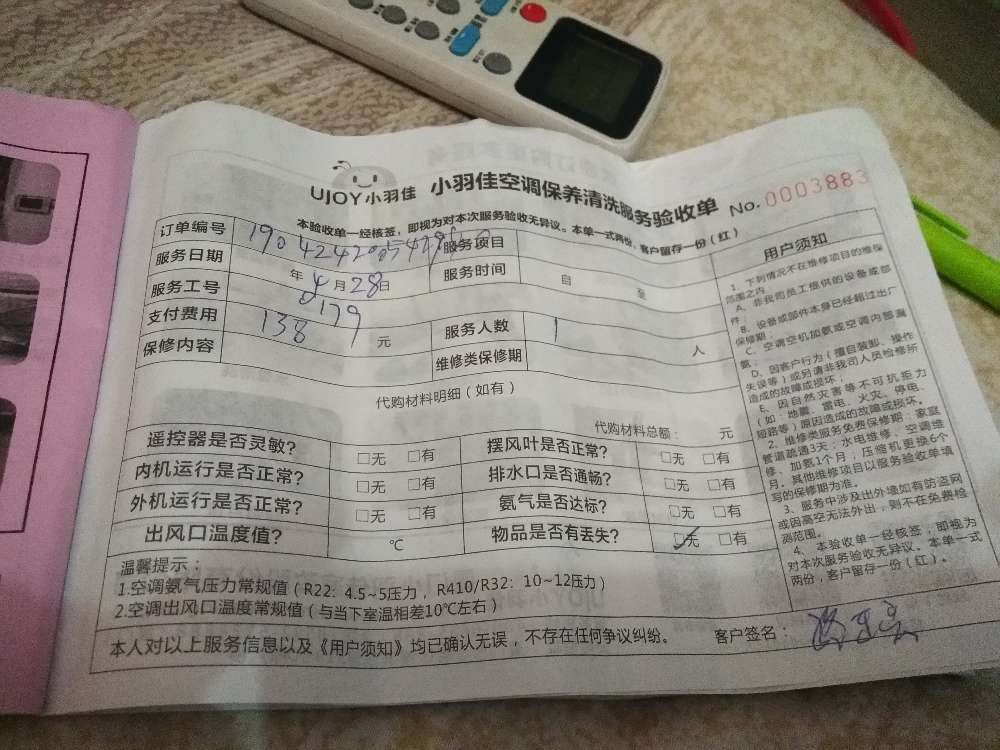 UJOY小羽佳 小羽佳空调保养清洗服务验收单 No.0003883
本验收单一经核签，即视为对本次服务验收无异议。本单一式两份，客户留存一份（红）
订单编号 服务项目
服务日期 年 4月28日 服务时间 自 至
服务工号 179
支付费用 138 元 服务人数 1 人
保修内容 维修类保修期
代购材料明细（如有）
代购材料总额： 元
遥控器是否灵敏？ □无 □有 摆风叶是否正常？ □无 □有
内机运行是否正常？ □无 □有 排水口是否通畅？ □无 □有
外机运行是否正常？ □无 □有 氨气是否达标？ □无 □有
出风口温度值？ ℃ 物品是否有丢失？ ☑无 □有
温馨提示：
1.空调氨气压力常规值（R22: 4.5~5压力，R410/R32: 10~12压力）
2.空调出风口温度常规值（与当下室温相差10℃左右）
本人对以上服务信息以及《用户须知》均已确认无误，不存在任何争议纠纷。 客户签名：
用户须知
1、下列情况不在维修项目的维保
范围之内
A、非我司员工提供的设备或部
件；
B、设备或部件本身已经超过出厂
保修期；
C、空调空机加氨或空调内部漏
氨；
D、因客户行为（擅自装卸、操作
失误等）或另请非我司人员检修所
造成的故障或损坏；
E、因自然灾害等不可抗拒力
（如：地震、雷电、火灾、停电、
短路等）原因造成的故障或损坏。
2、维修类服务免费保修期：家庭
管道疏通3天；水电维修、空调维
修、加氨1个月；压缩机更换6个
月。其他维修项目以服务验收单填
写的保修期为准。
3、服务中涉及出外墙如有防盗网
或因高空无法外出，则不在免费检
测范围。
4、本验收单一经核签，即视为
对本次服务验收无异议。本单一式
两份，客户留存一份（红）。